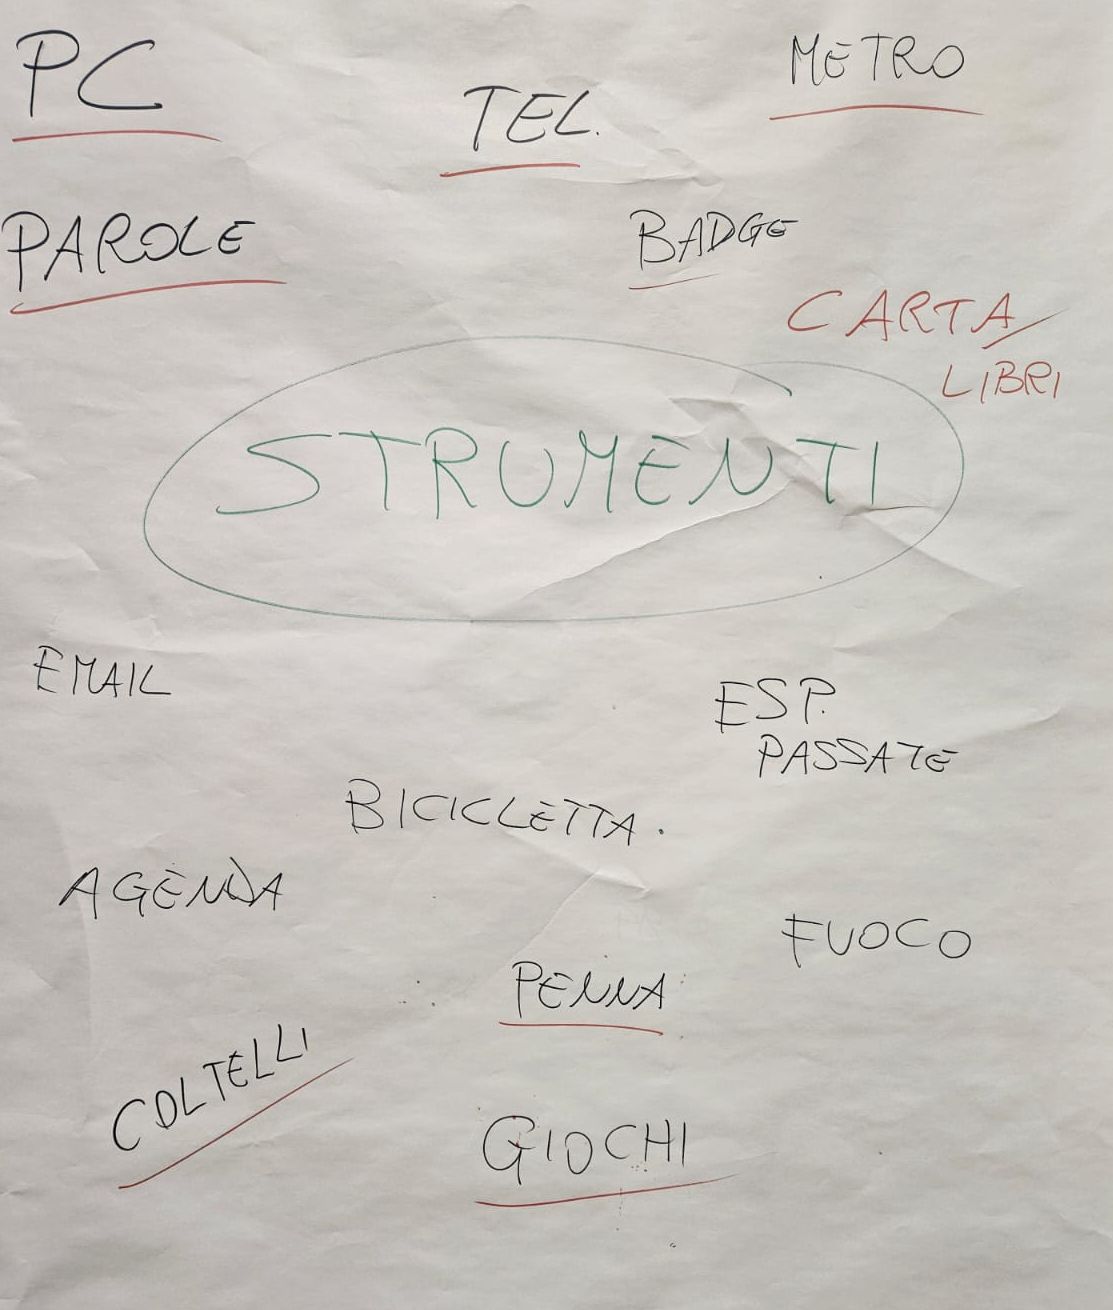 PC
TEL.
METRO
PAROLE
BADGE
CARTA/
LIBRI
STRUMENTI
EMAIL
ESP.
PASSATE
BICICLETTA.
AGENDA
FUOCO
PENNA
COLTELLI
GIOCHI